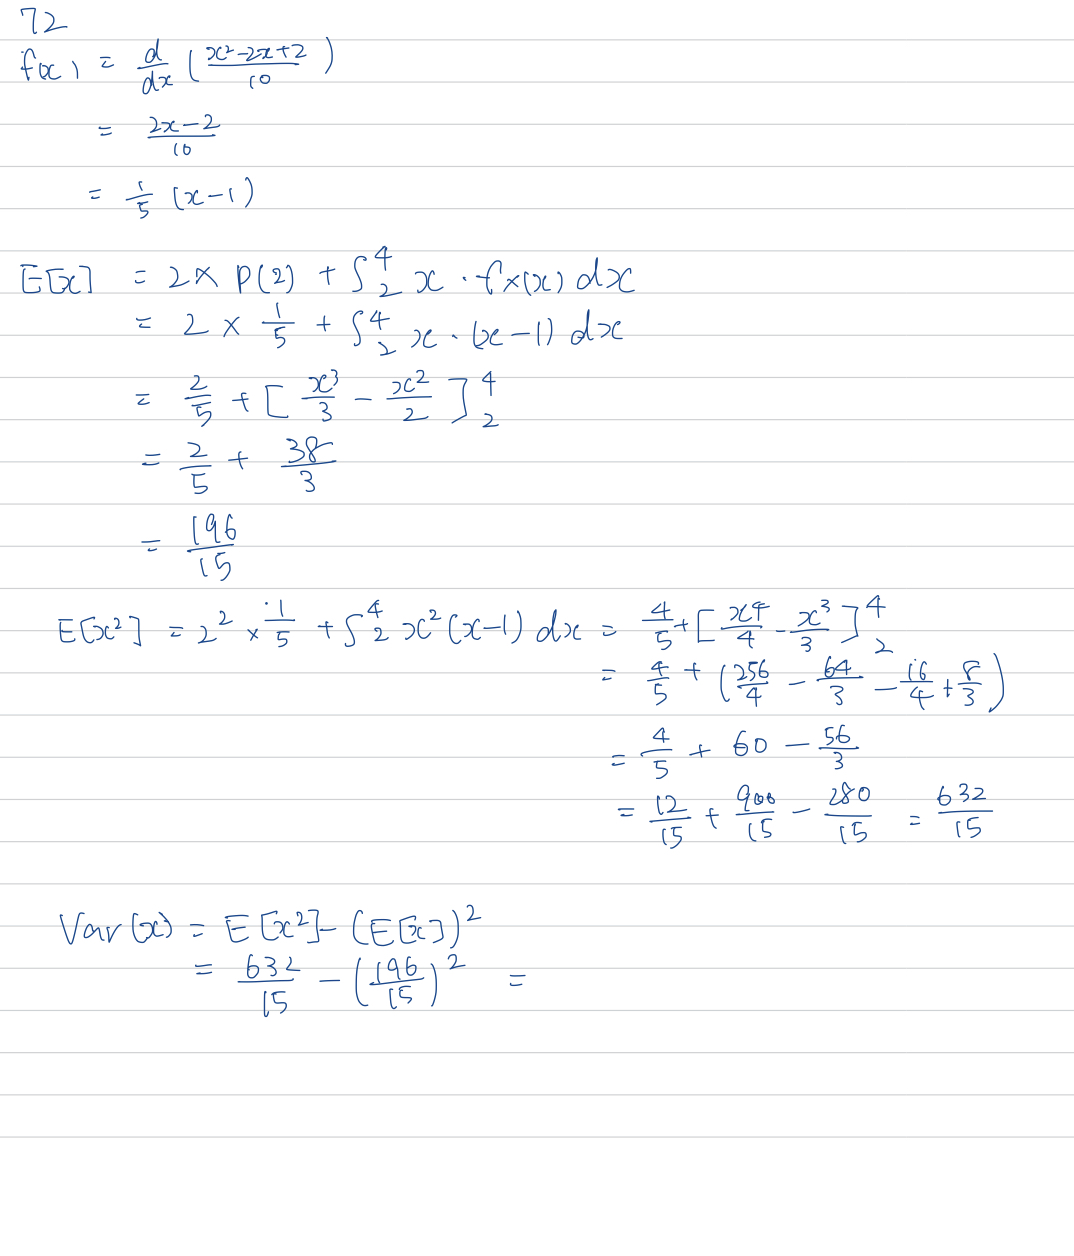 72
f(x) = d/dx ( (x²-2x+2)/10 )
= (2x-2)/10
= 1/5 (x-1)
E[x] = 2 × P(2) + ∫₂⁴ x · fx(x) dx
= 2 × 1/5 + ∫₂⁴ x · (x-1) dx
= 2/5 + [ x³/3 - x²/2 ]₂⁴
= 2/5 + 38/3
= 196/15
E[x²] = 2² × 1/5 + ∫₂⁴ x² (x-1) dx = 4/5 + [ x⁴/4 - x³/3 ]₂⁴
= 4/5 + ( 256/4 - 64/3 - 16/4 + 8/3 )
= 4/5 + 60 - 56/3
= 12/15 + 900/15 - 280/15 = 632/15
Var(x) = E[x²] - (E[x])²
= 632/15 - (196/15)² =